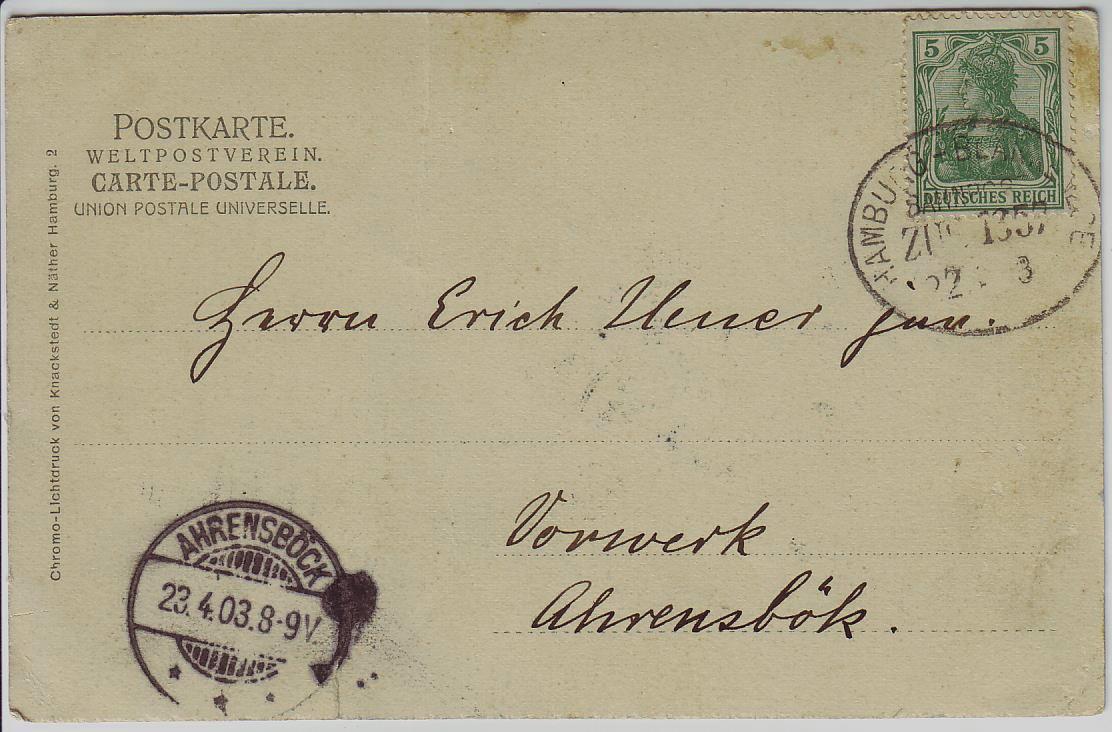 POSTKARTE.
WELTPOSTVEREIN.
CARTE-POSTALE.
UNION POSTALE UNIVERSELLE.
Chromo-Lichtdruck von Knackstedt & Näther Hamburg. 2
5 5
DEUTSCHES REICH
HAMBURG
ZUG 1357
22 3
Herrn Erich jun.
Vorwerk
Ahrensbök.
AHRENSBÖCK
23.4.03.8-9V